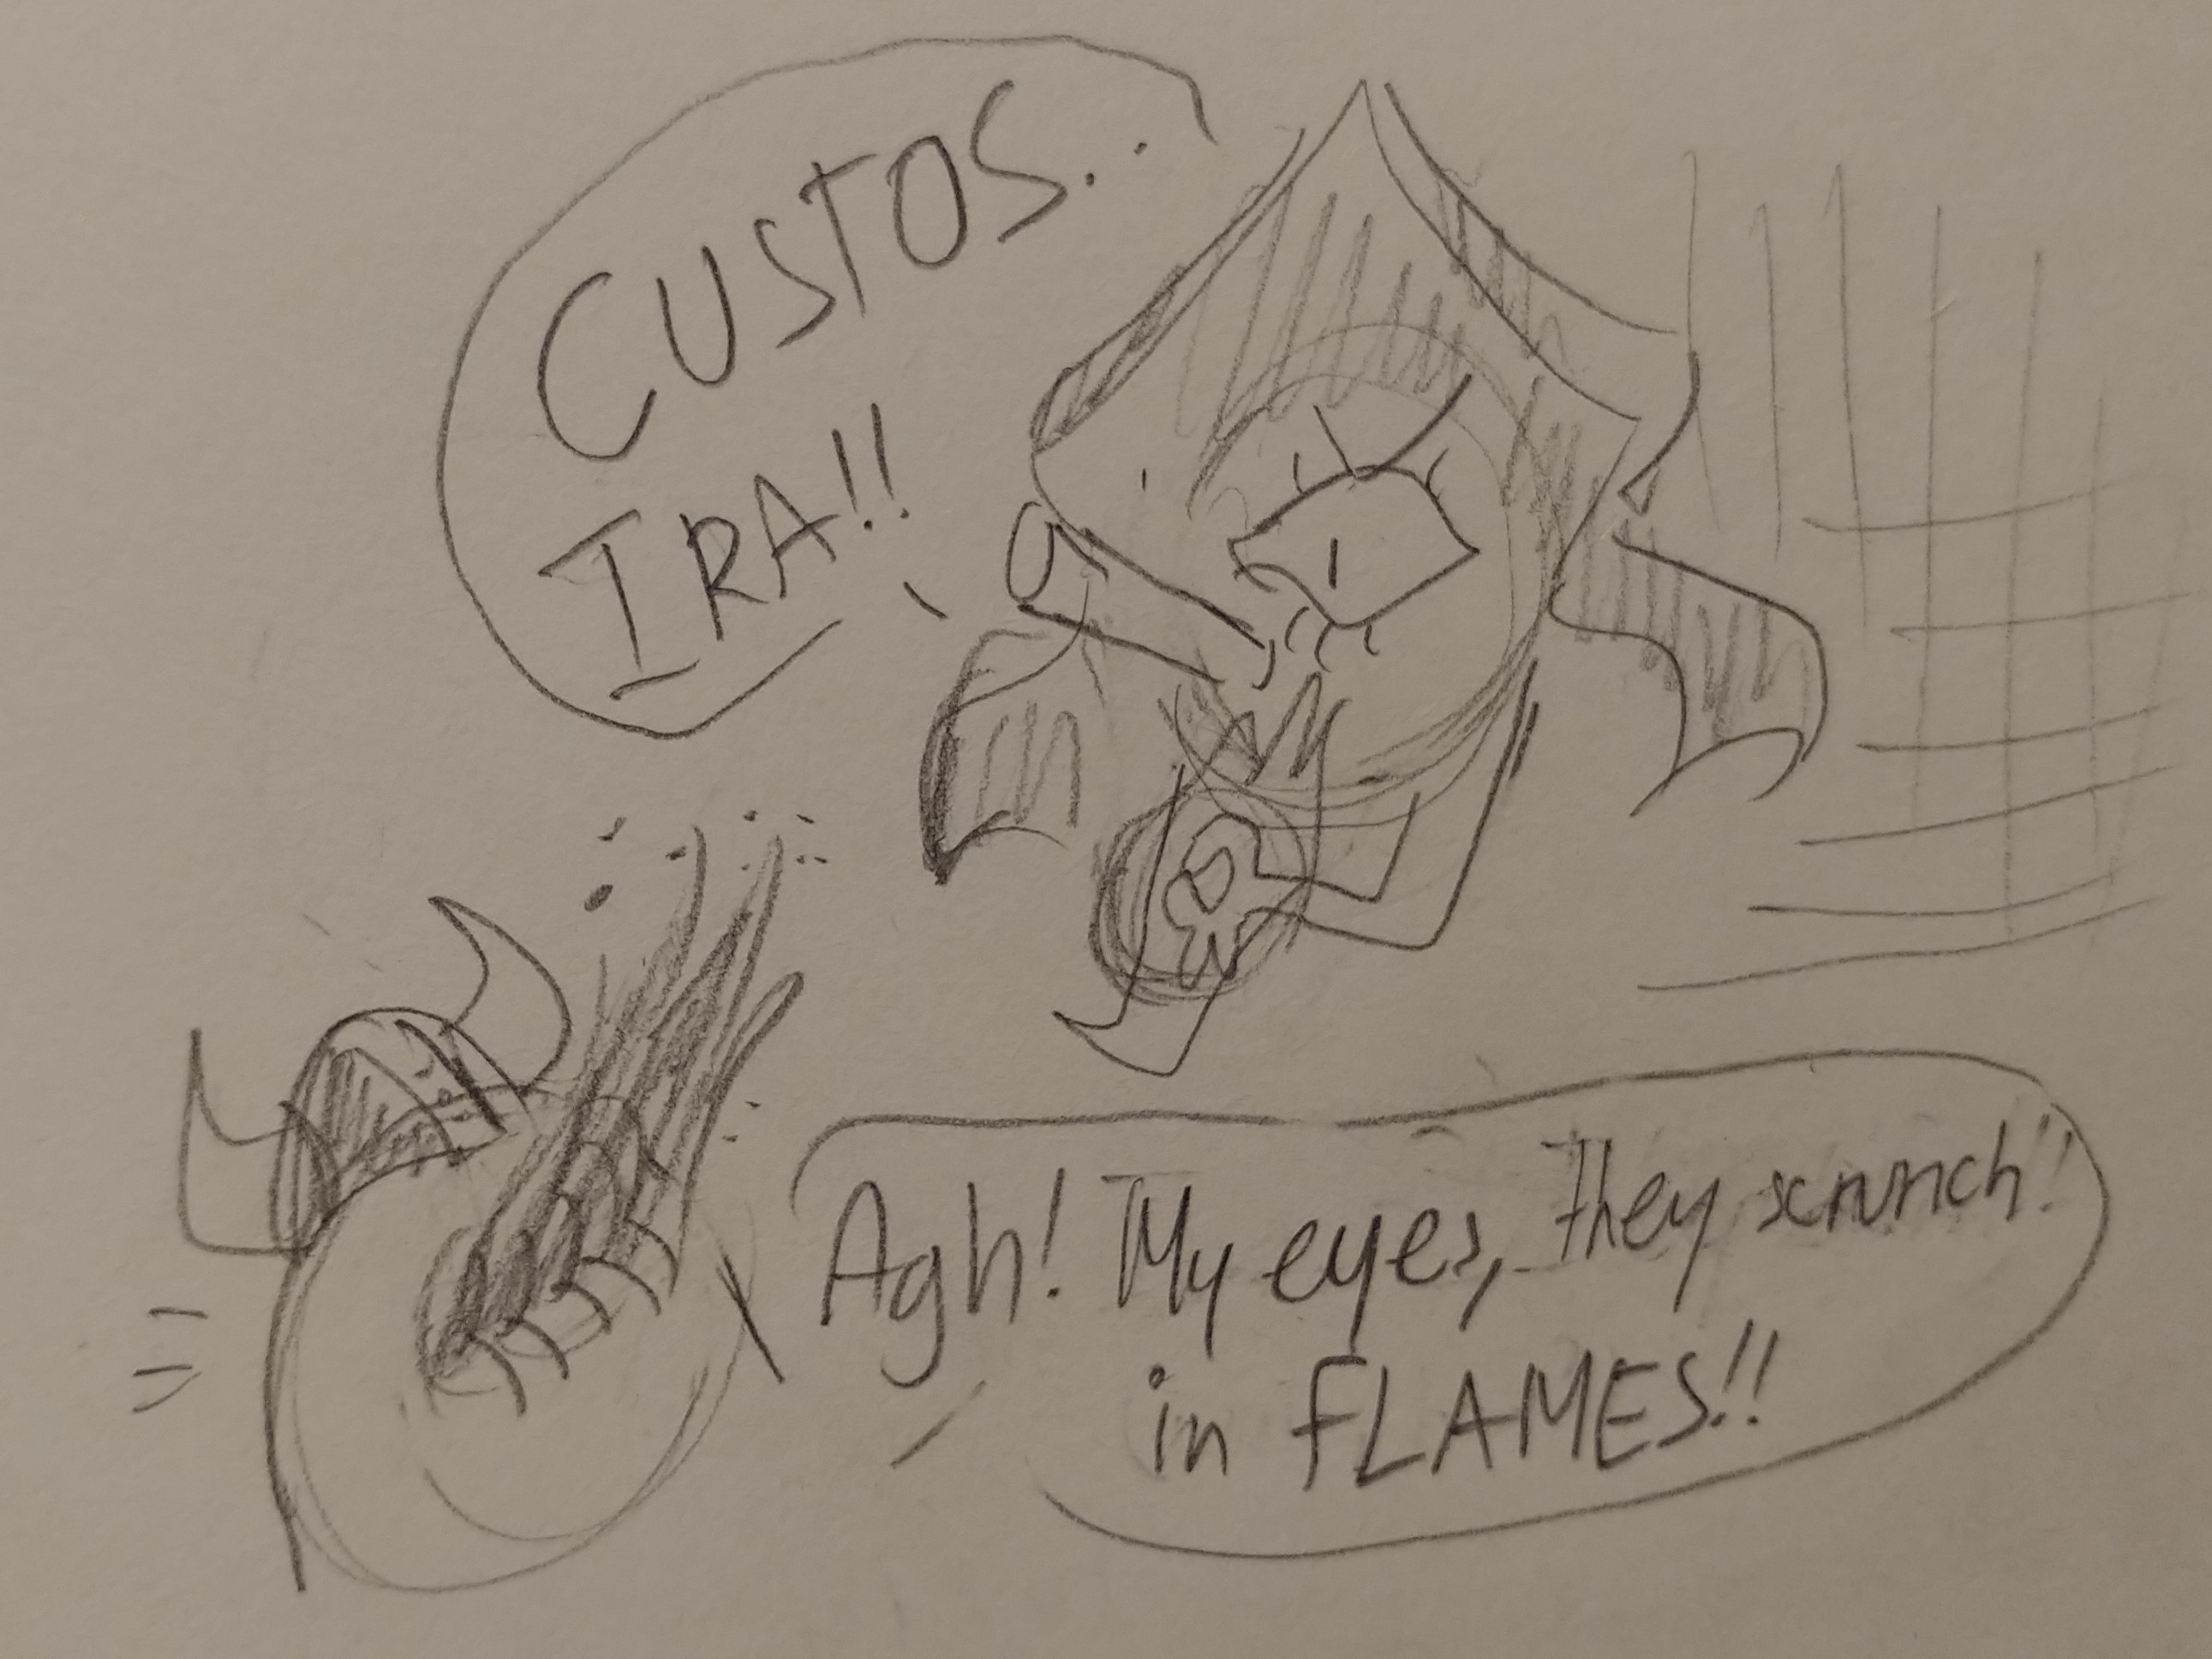 CUSTOS..
IRA!!
Agh! My eyes, they scrunch!!
in FLAMES!!